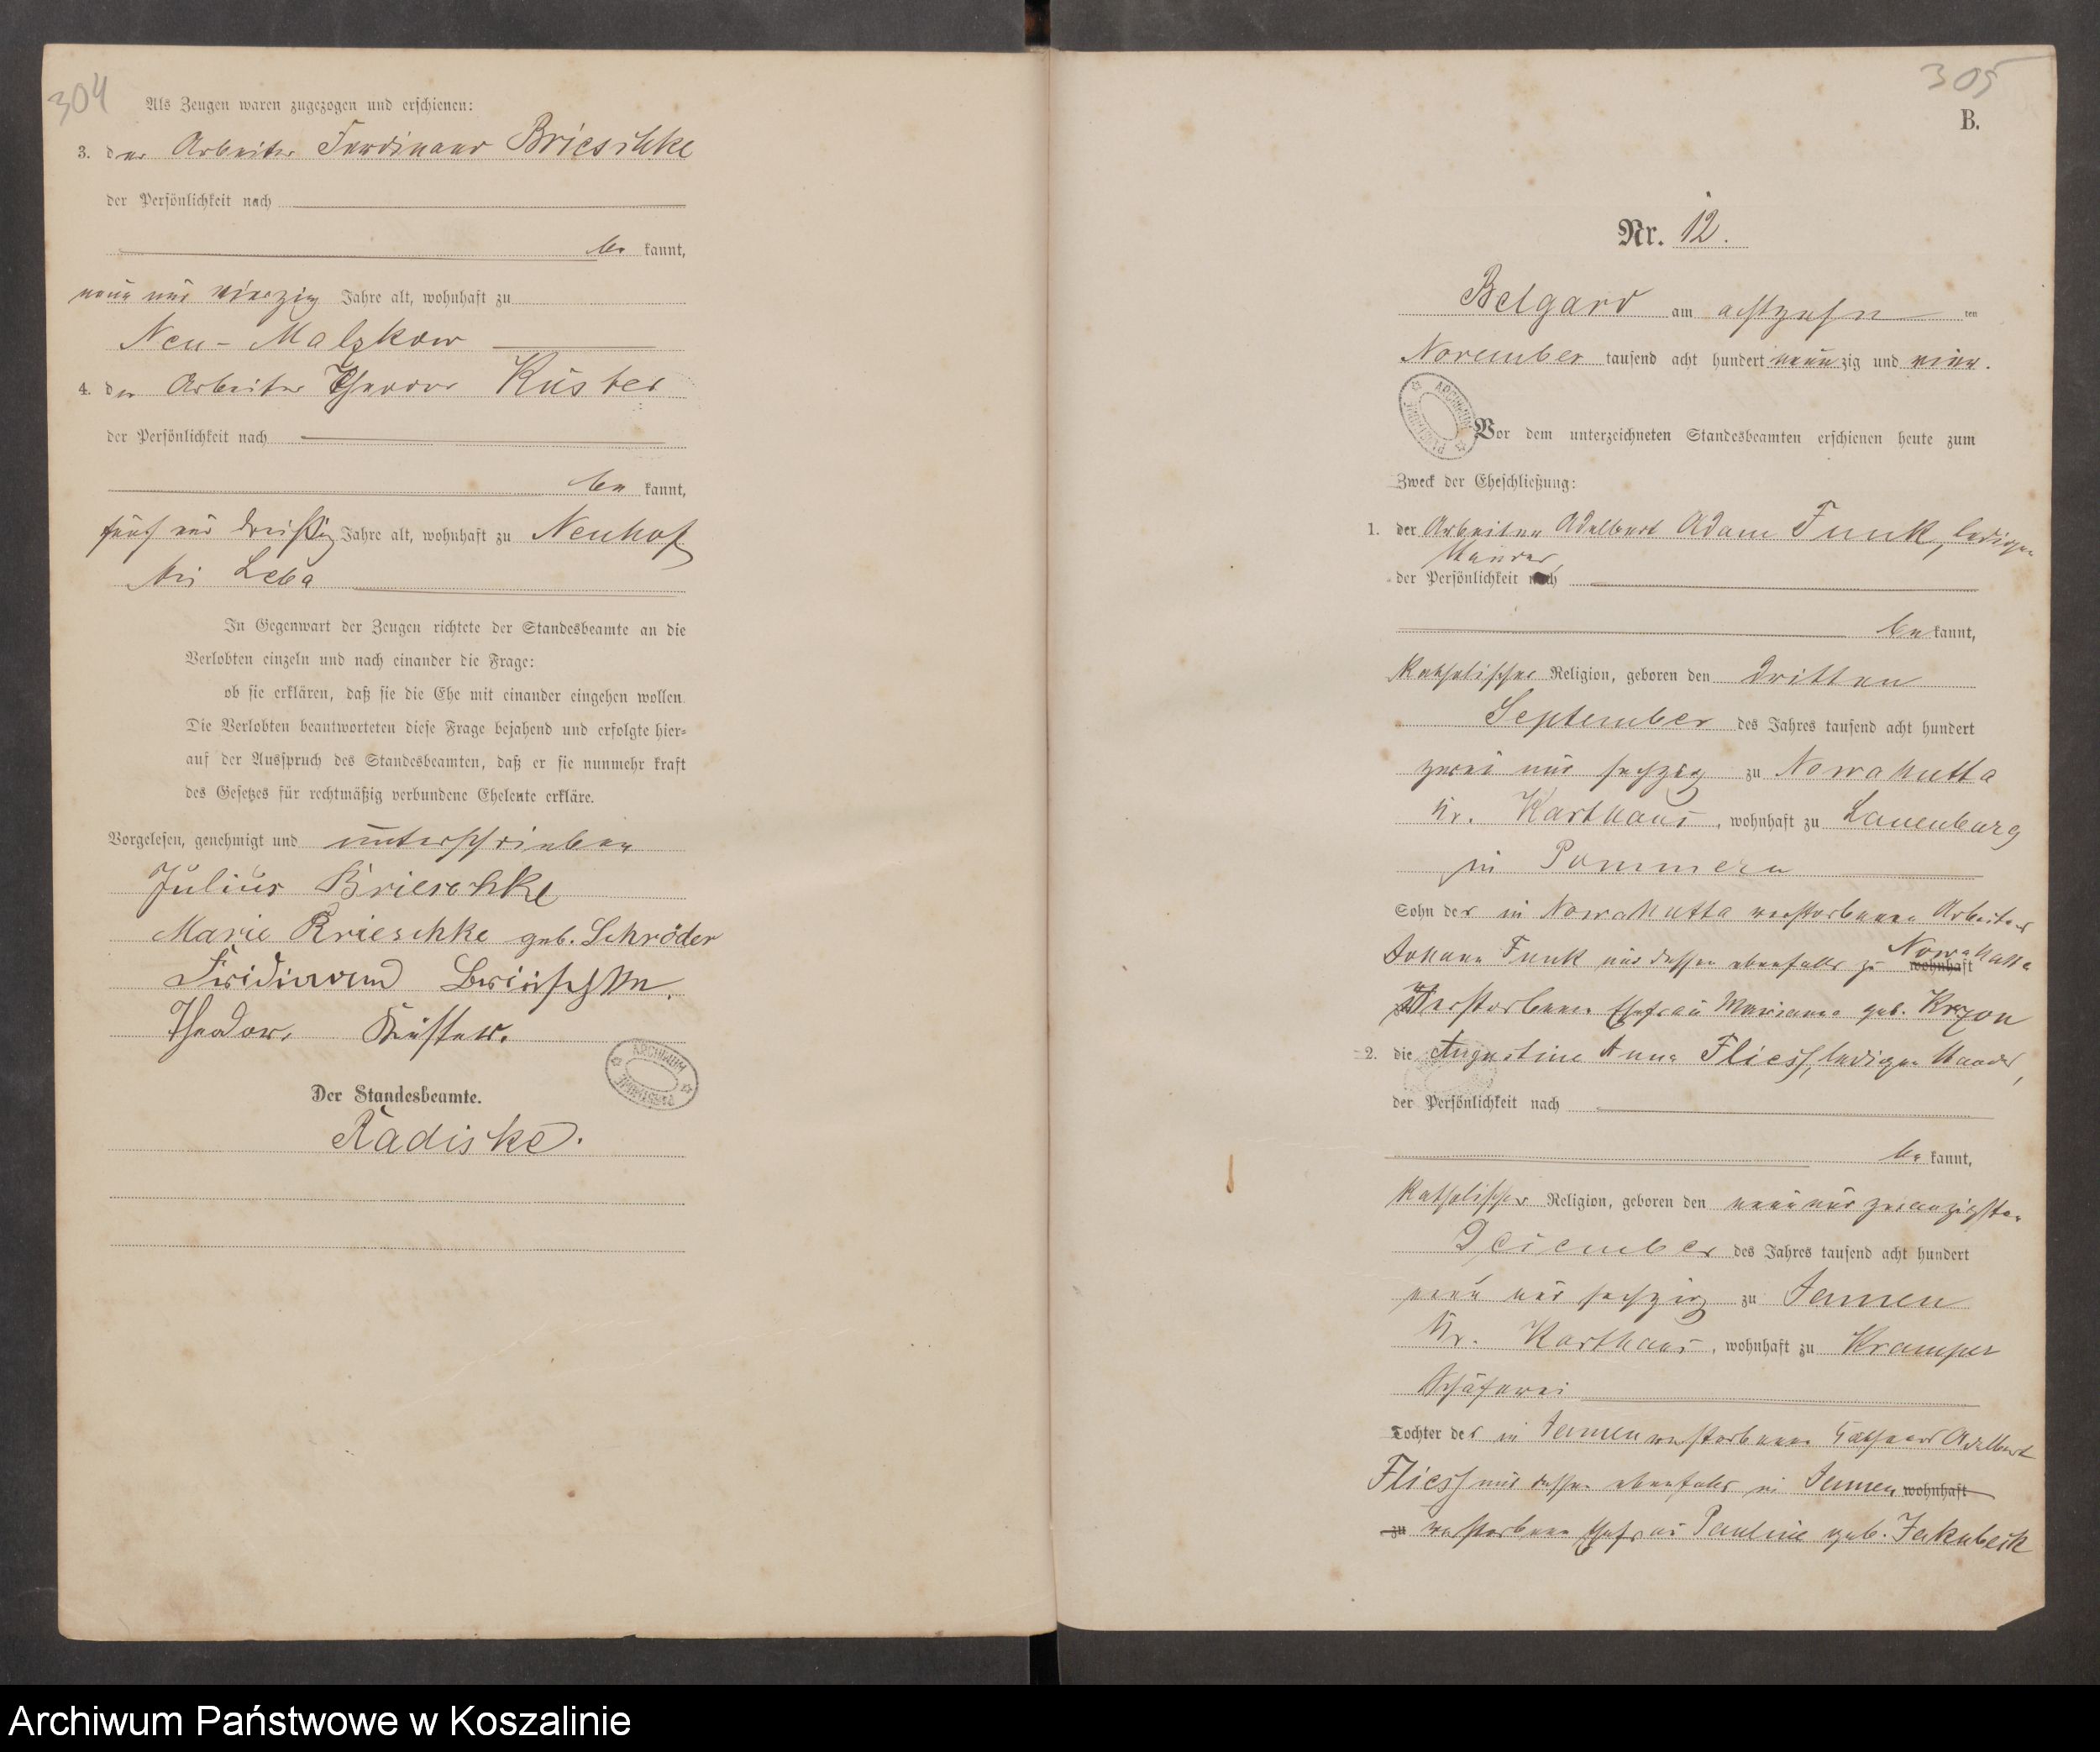 304
Als Zeugen waren zugezogen und erschienen:
3. der Arbeiter Ferdinand Brieschke
der Persönlichkeit nach
be kannt,
neun und vierzig Jahre alt, wohnhaft zu
Neu-Malzkow
4. der Arbeiter Theodor Küster
der Persönlichkeit nach
be kannt,
fünf und dreißig Jahre alt, wohnhaft zu Neuhof
bei Leba
In Gegenwart der Zeugen richtete der Standesbeamte an die
Verlobten einzeln und nach einander die Frage:
ob sie erklären, daß sie die Ehe mit einander eingehen wollen.
Die Verlobten beantworteten diese Frage bejahend und erfolgte hier=
auf der Ausspruch des Standesbeamten, daß er sie nunmehr kraft
des Gesetzes für rechtmäßig verbundene Eheleute erkläre.
Vorgelesen, genehmigt und unterschrieben
Julius Brieschke
Marie Brieschke geb. Schröder
Ferdinand Brieschke.
Theodor Küster.
ARCHIWUM PAŃSTWOWE
Der Standesbeamte.
Radiske.
305
B.
Nr. 12.
Belgard am achtzehn ten
November tausend acht hundert neunzig und vier.
ARCHIWUM PAŃSTWOWE
Vor dem unterzeichneten Standesbeamten erschienen heute zum
Zweck der Eheschließung:
1. der Arbeiter Adalbert Adam Funk, ledigen
Standes,
der Persönlichkeit nach
be kannt,
katholischer Religion, geboren den dritten
September des Jahres tausend acht hundert
zwei und sechzig zu Nowahutta
Kr. Karthaus, wohnhaft zu Lauenburg
in Pommern
Sohn des in Nowahutta verstorbenen Arbeiters
Johann Funk und dessen ebenfalls zu wohnhaft Nowahutta
verstorbenen Ehefrau Marianna geb.
2. die Augustine Anna Fliess, ledigen Standes,
der Persönlichkeit nach
be kannt,
katholischer Religion, geboren den neun und zwanzigsten
Dezember des Jahres tausend acht hundert
neun und sechzig zu Jamen
Kr. Karthaus, wohnhaft zu Kramper
Schäferei
Tochter des in Jamen verstorbenen Adalbert
Fliess und dessen ebenfalls in Jamen wohnhaft
zu verstorbenen Ehefrau Pauline geb. Jakubeck
Archiwum Państwowe w Koszalinie